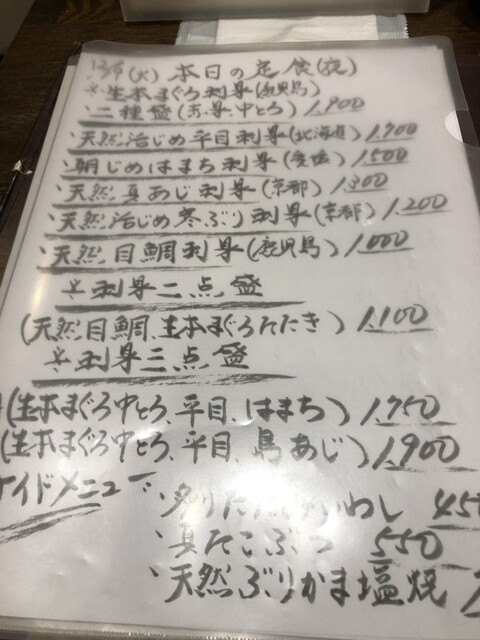 12/9(火) 本日の定食(夜)
※生本まぐろ刺身(鹿児島)
、二種盛(赤身、中とろ) 1,900
、天然活じめ平目刺身(北海道) 1,700
、朝じめはまち刺身 1,500
、天然真あじ刺身(京都) 1,300
、天然活じめ寒ぶり刺身(京都) 1,200
、天然目鯛刺身(鹿児島) 1,000
※刺身二点盛
(天然目鯛、生本まぐろたたき) 1,100
※刺身三点盛
(生本まぐろ中とろ、平目、はまち) 1,750
(生本まぐろ中とろ、平目、島あじ) 1,900
サイドメニュー
いわし 450
、真たこぶつ 550
、天然ぶりかま塩焼